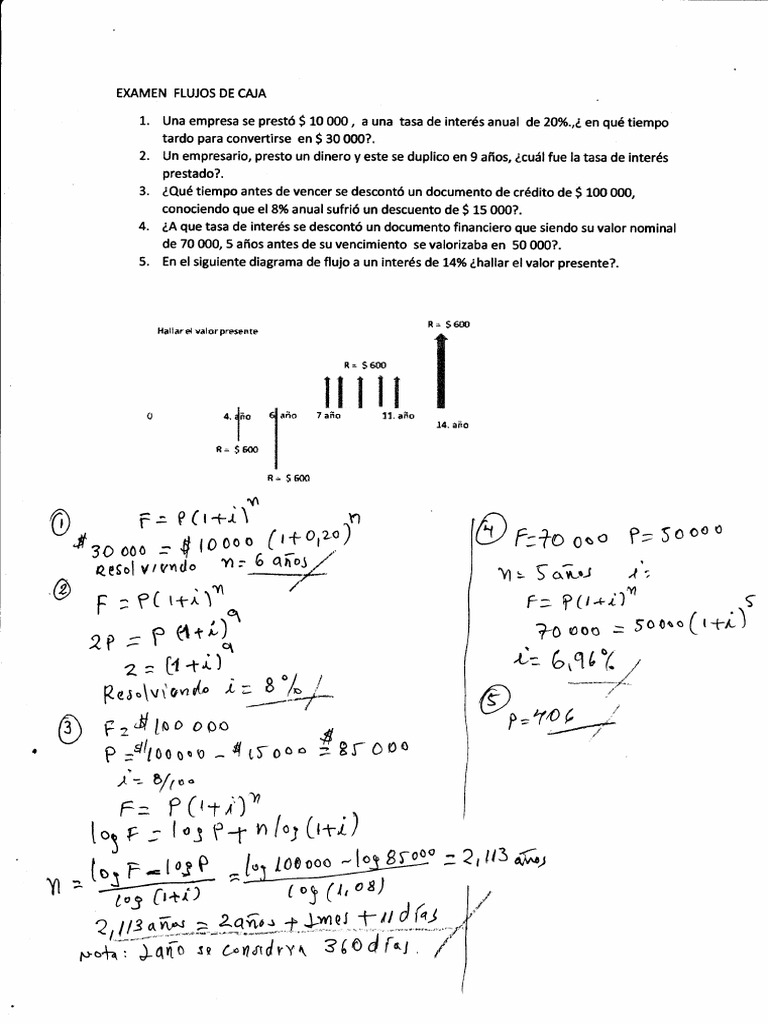 EXAMEN FLUJOS DE CAJA
1. Una empresa se prestó $ 10 000 , a una tasa de interés anual de 20%.,¿ en qué tiempo
tardo para convertirse en $ 30 000?.
2. Un empresario, presto un dinero y este se duplico en 9 años, ¿cuál fue la tasa de interés
prestado?.
3. ¿Qué tiempo antes de vencer se descontó un documento de crédito de $ 100 000,
conociendo que el 8% anual sufrió un descuento de $ 15 000?.
4. ¿A que tasa de interés se descontó un documento financiero que siendo su valor nominal
de 70 000, 5 años antes de su vencimiento se valorizaba en 50 000?.
5. En el siguiente diagrama de flujo a un interés de 14% ¿hallar el valor presente?.
Hallar el valor presente
R = $ 600
R = $ 600
0 4. año 6 año 7 año 11. año
14. año
R = $ 600
R = $ 600
① F = P(1+i)^n
$ 30 000 = $ 10 000 (1+0,20)^n
Resolviendo n= 6 años
② F = P(1+i)^n
2P = P (1+i)^9
2 = (1+i)^9
Resolviendo i = 8%
③ F= $100 000
P = $100000 - $ 15 000 = $ 85 000
i = 8/100
F = P(1+i)^n
log F = log P + n log (1+i)
n = (log F - log P)/(log (1+i)) = (log 100000 - log 85000)/(log (1,08)) = 2,113 años
2,113 años = 2 años + 1 mes + 11 días
Nota: 1 año se considera 360 días.
④ F=70 000 P= 50000
n= 5 años i=
F= P(1+i)^n
70 000 = 50000(1+i)^5
i= 6,96%
⑤ P=406